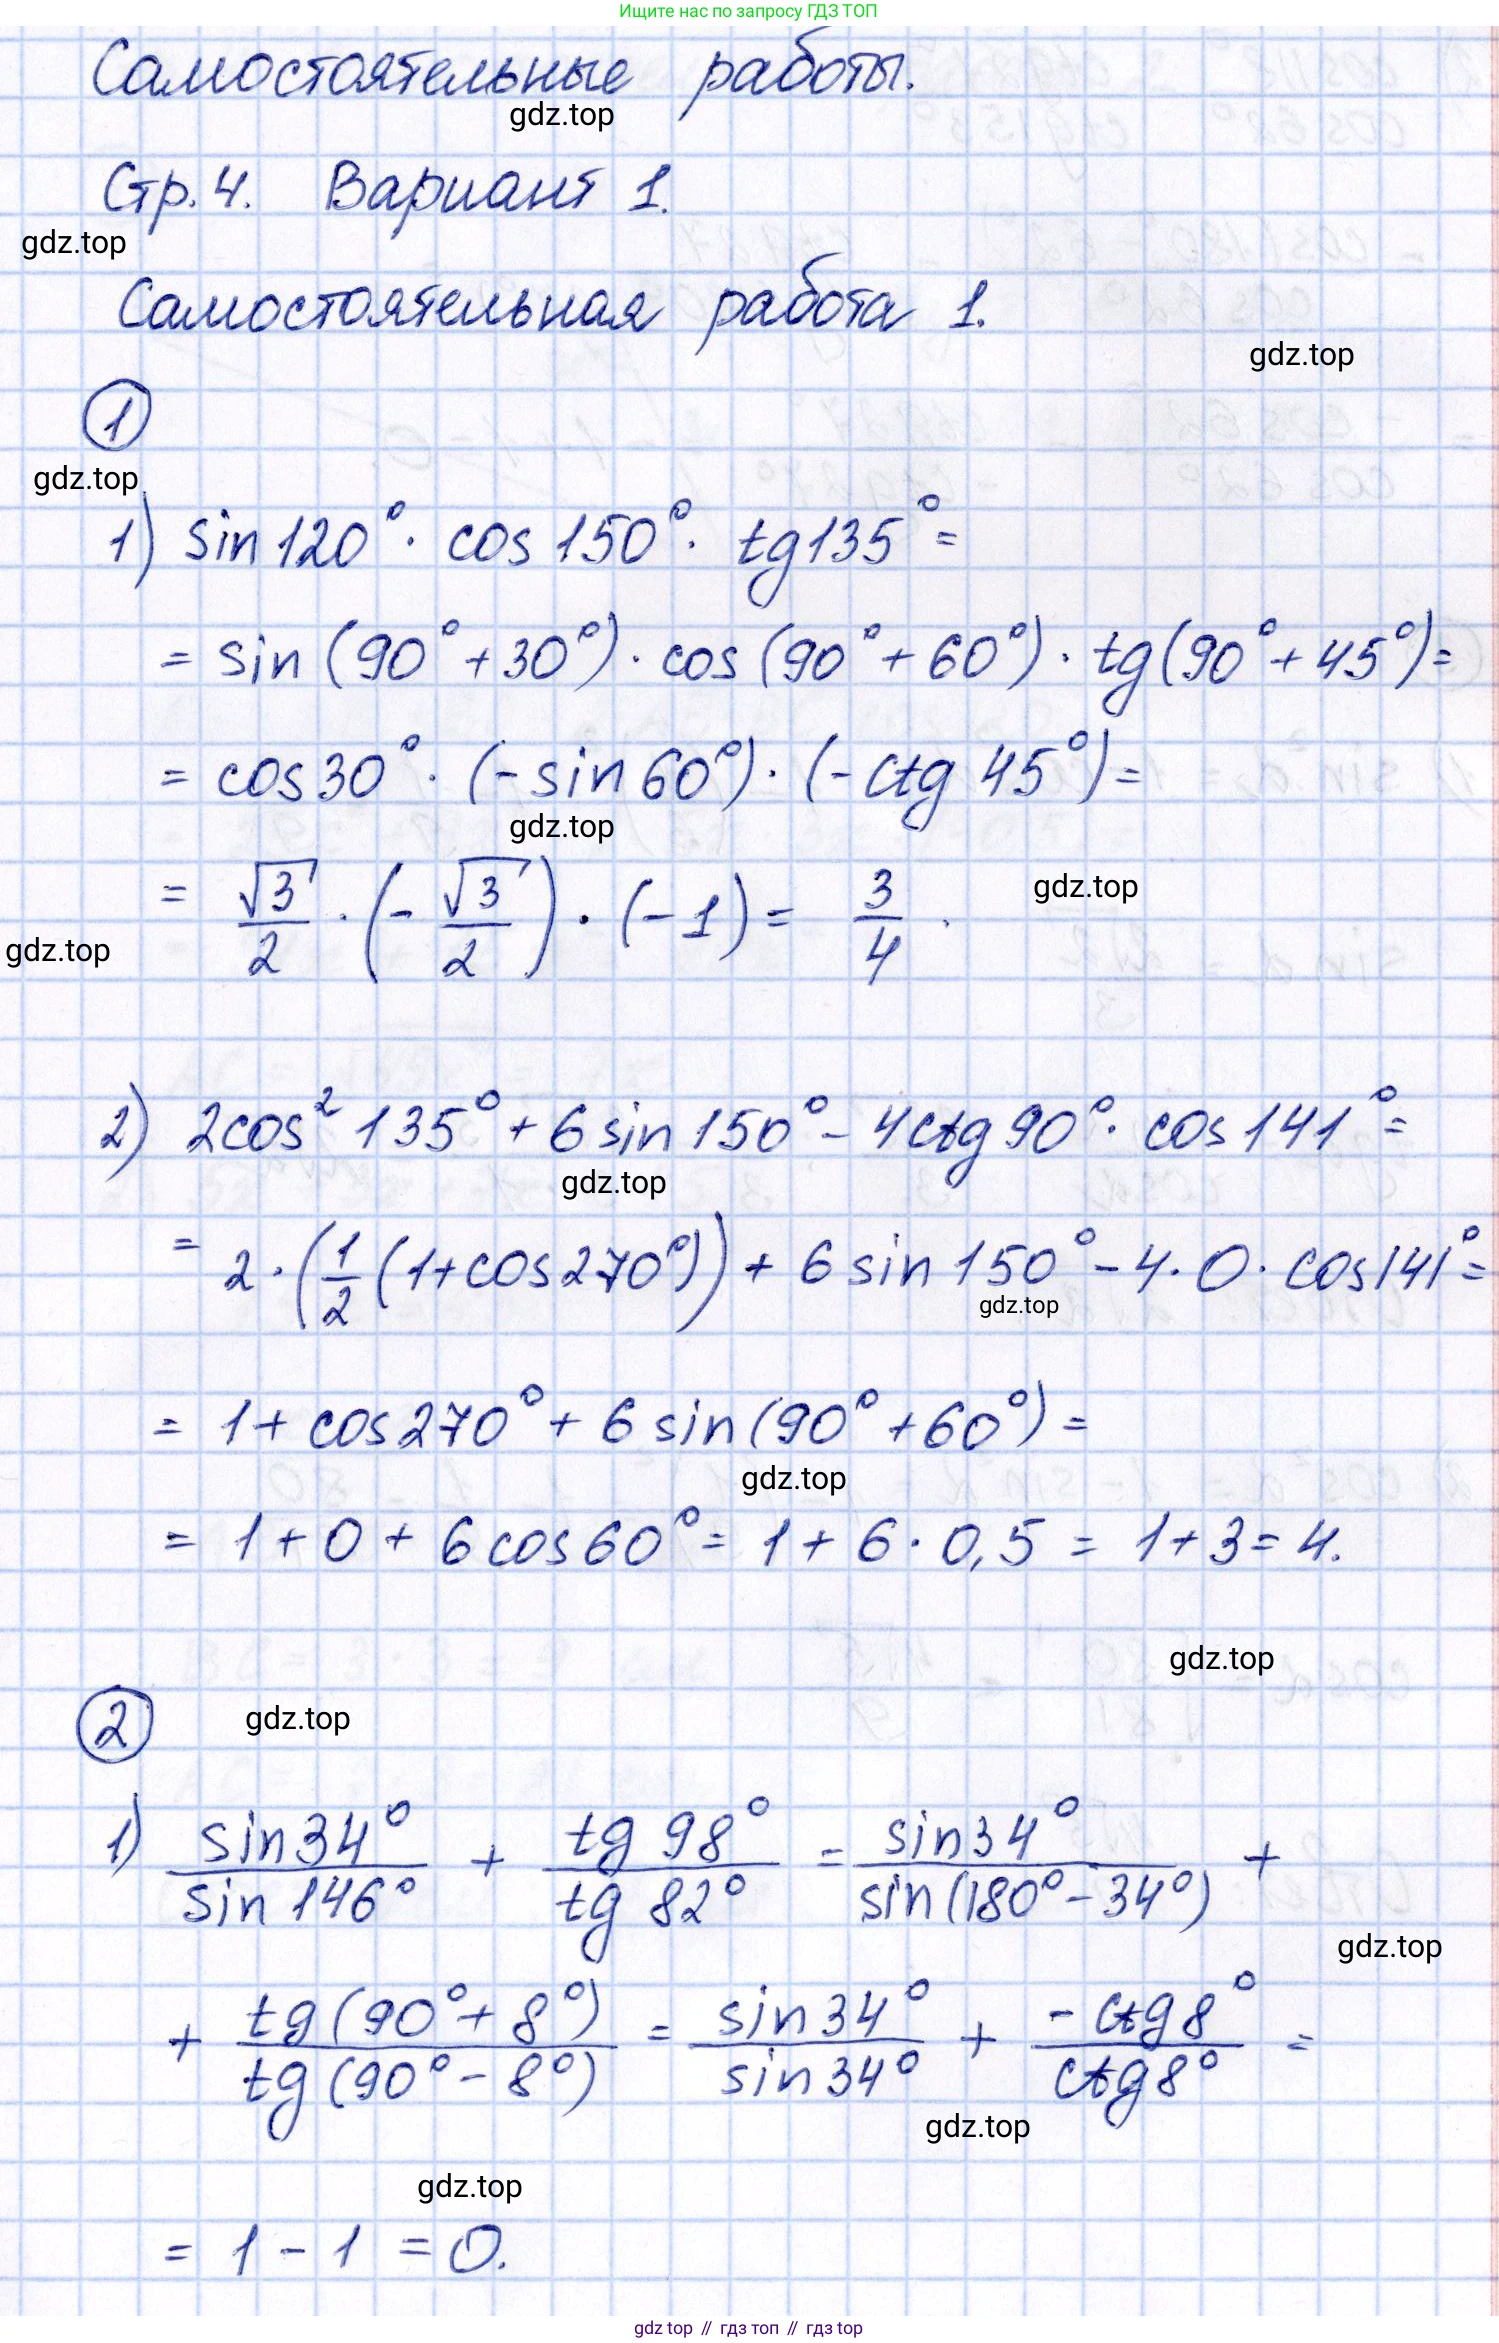 Ищите нас по запросу ГДЗ ТОП
Самостоятельные работы.
gdz.top
Стр. 4. Вариант 1.
gdz.top
Самостоятельная работа 1.
gdz.top
1
gdz.top
1) sin 120° · cos 150° · tg 135° =
= sin (90° + 30°) · cos (90° + 60°) · tg (90° + 45°) =
= cos 30° · (- sin 60°) · (- ctg 45°) =
gdz.top
= √3/2 · (- √3/2) · (-1) = 3/4.
gdz.top
gdz.top
2) 2cos² 135° + 6 sin 150° - 4ctg 90° · cos 141° =
gdz.top
= 2 · (1/2 (1 + cos 270°)) + 6 sin 150° - 4 · 0 · cos 141° =
gdz.top
= 1 + cos 270° + 6 sin (90° + 60°) =
gdz.top
= 1 + 0 + 6 cos 60° = 1 + 6 · 0,5 = 1 + 3 = 4.
gdz.top
2
gdz.top
1) sin 34° / sin 146° + tg 98° / tg 82° = sin 34° / sin (180° - 34°) +
gdz.top
+ tg (90° + 8°) / tg (90° - 8°) = sin 34° / sin 34° + - ctg 8° / ctg 8° =
gdz.top
gdz.top
= 1 - 1 = 0.
gdz top // гдз топ // гдз top